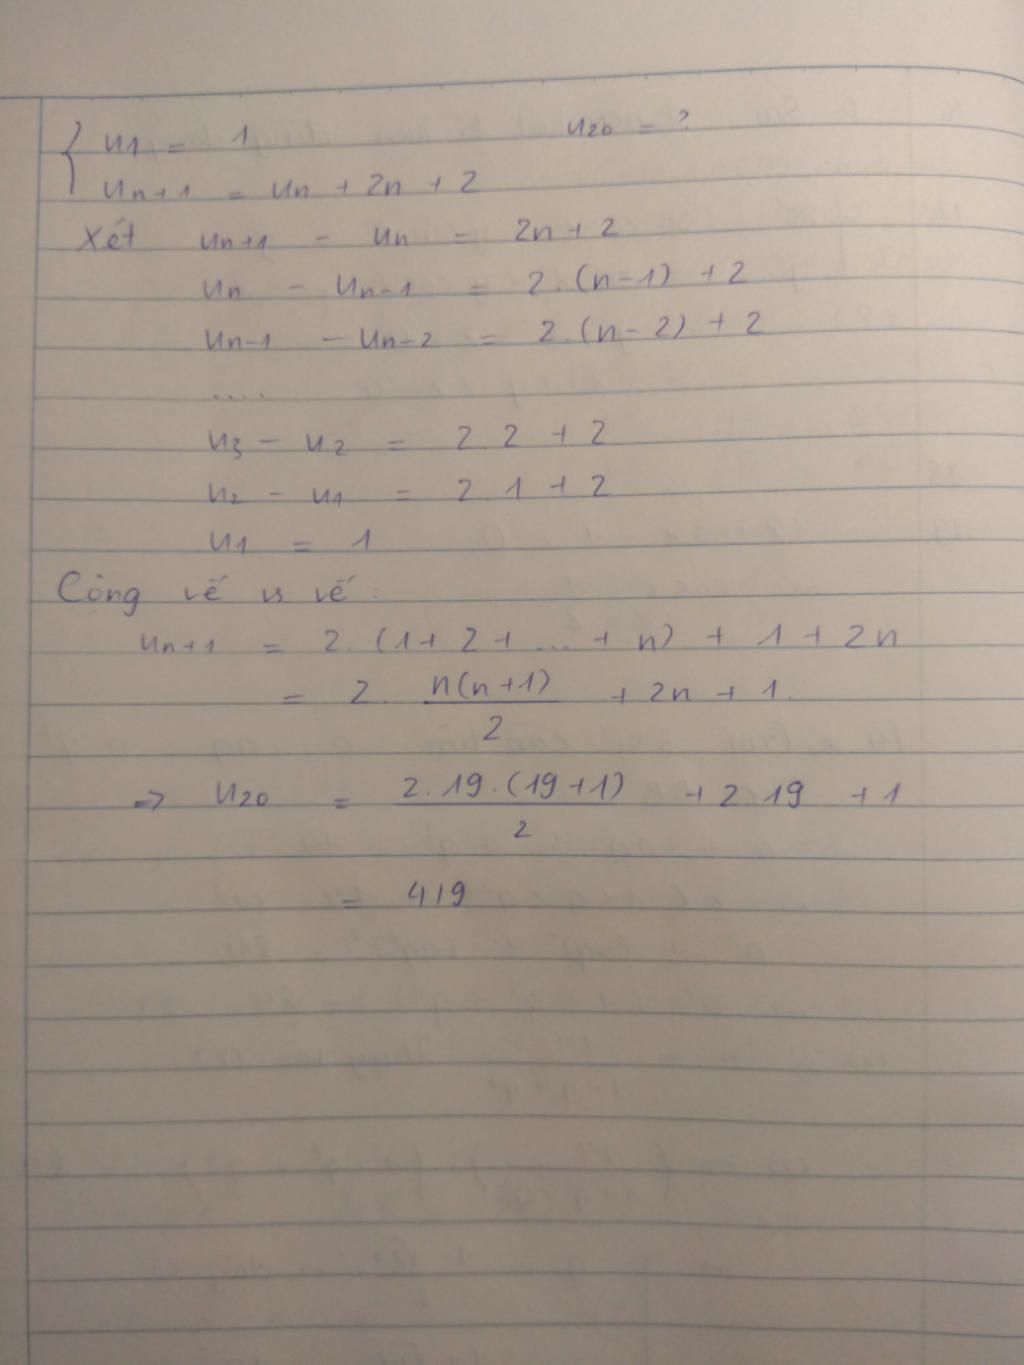 { u1 = 1 u20 = ?
un+1 = un + 2n + 2
Xét un+1 - un = 2n + 2
un - un-1 = 2.(n-1) + 2
un-1 - un-2 = 2.(n-2) + 2
....
u3 - u2 = 2.2 + 2
u2 - u1 = 2.1 + 2
u1 = 1
Công vế vs vế :
un+1 = 2.(1+2+...+n) + 1 + 2n
= 2. n(n+1)/2 + 2n + 1.
=> u20 = 2.19.(19+1)/2 + 2.19 + 1
= 419